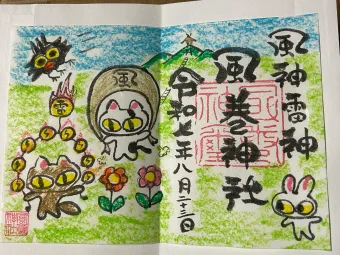 風神雷神
風巻神社
令和七年八月二十三日
風